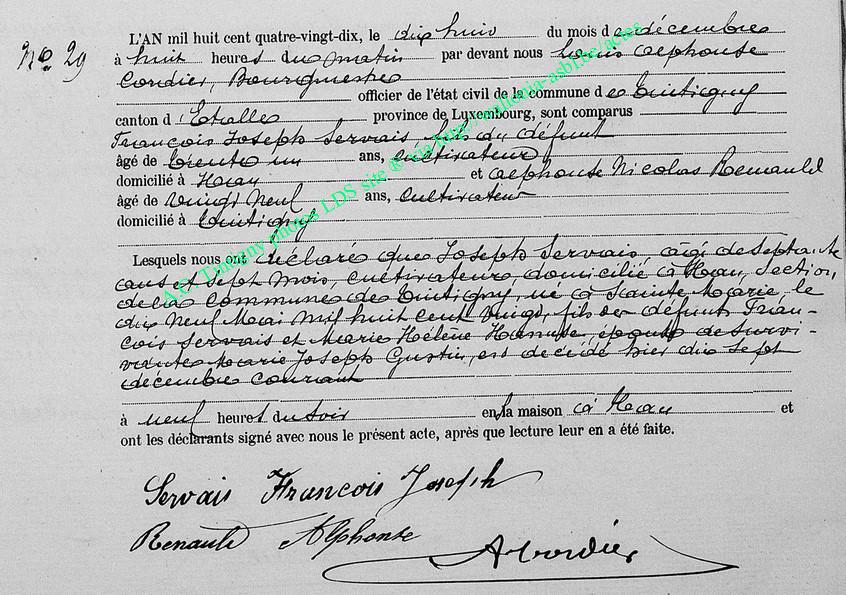 No. 29
L'AN mil huit cent quatre-vingt-dix, le dix huit du mois de décembre
à huit heures du matin par devant nous Louis Alphonse
Cordier, Bourgmestre
officier de l'état civil de la commune de Tintigny
canton d'Etalle province de Luxembourg, sont comparus
François Joseph Servais fils du défunt
âgé de trente un ans, cultivateur
domicilié à Han et Alphonse Nicolas Renauld
âgé de vingt neuf ans, cultivateur
domicilié à Tintigny
Lesquels nous ont déclaré que Joseph Servais, âgé de septante
ans et sept mois, cultivateur domicilié à Han, section
de la commune de Tintigny, né à Sainte Marie, le
dix neuf Mai mil huit cent vingt, fils de défunts Fran-
çois Servais et Marie Hélène Hanuse époux de survi-
vante Marie Joseph Gustin, est décédé hier dix sept
décembre courant
à neuf heures du soir en la maison à Han et
ont les déclarants signé avec nous le présent acte, après que lecture leur en a été faite.
Servais François Joseph
Renauld Alphonse
A Cordier
A.C. Tintigny photos LDS site ® via http://wallonia-asbl.be/actes